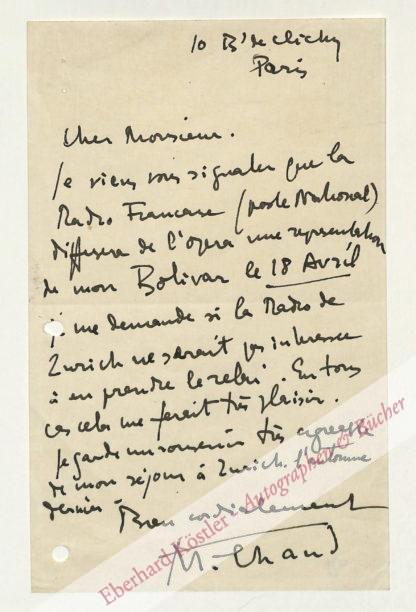 10 Bd de Clichy
Paris
Cher Monsieur.
Je viens vous signaler que la
Radio Francaise (poste National)
diffusera de l'opera une representation
de mon Bolivar le 18 Avril
je me demande si la Radio de
Zurich ne serait pas interessee
à en prendre le relai. En tous
cas cela me ferait très plaisir.
Je garde un souvenir très agreable
de mon séjour à Zurich l'automne
dernier
Bien cordialement
Milhaud
Eberhard Köstler - Autographen & Bücher